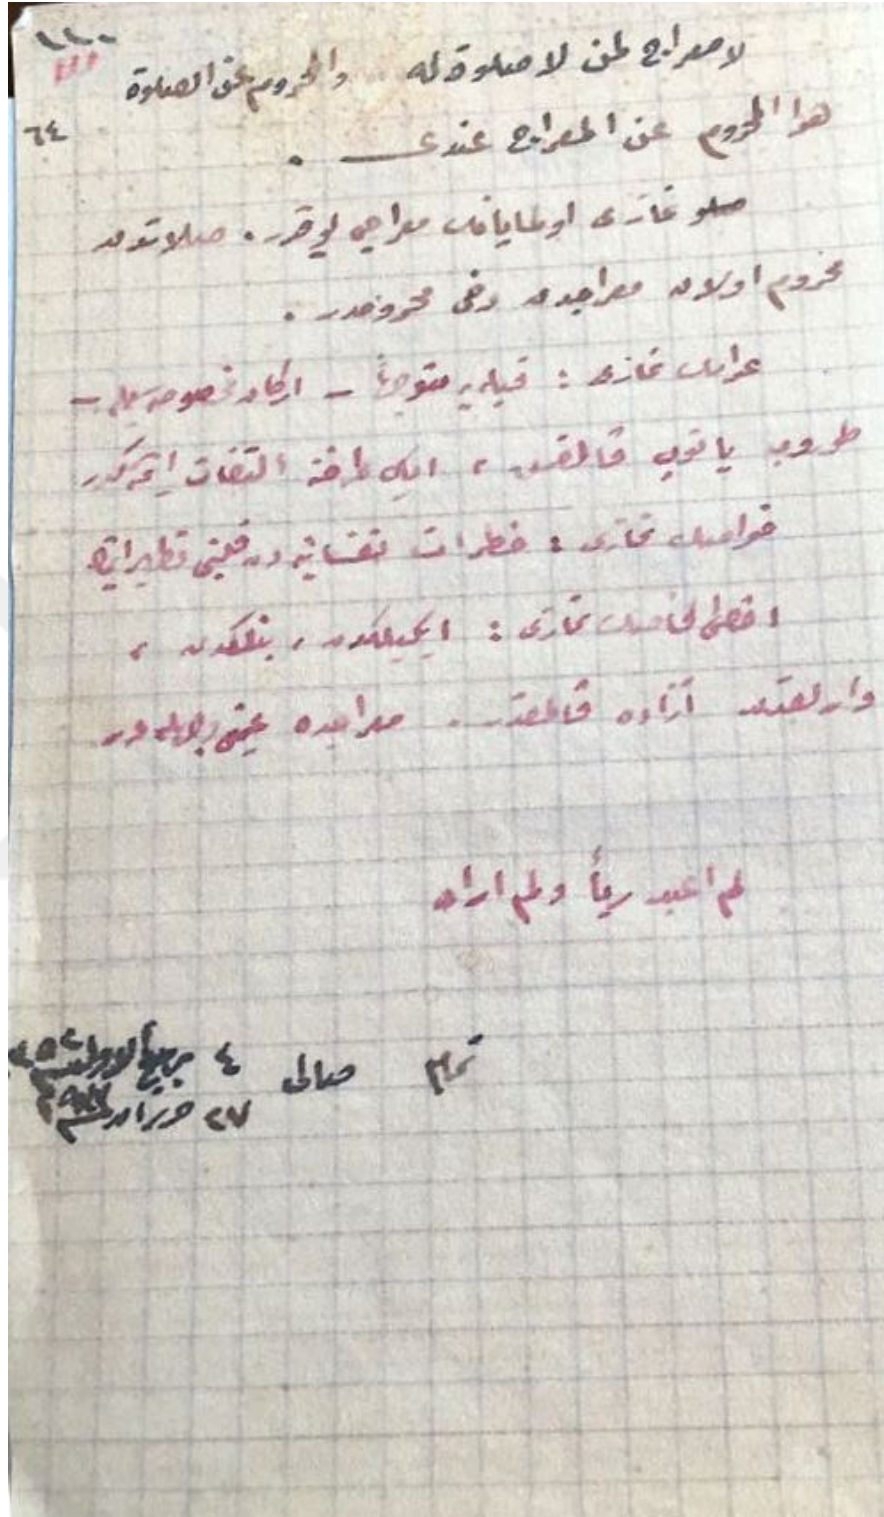 ١١٠
111
٦٤
لا معراج لمن لا صلوة له والمحروم عن الصلوة
هو المحروم عن المعراج عندى .
نمازى اولمايانك معراجى يوقدر . صلاتدن
محروم اولان معراجدن دخى محرومدر .
عوامك نمازى : قبلەيه متوجهاً – اركان مخصوصه‌سيله –
طوروب ياتوب قالقمق ، ايكى طرفه التفات ايتمكدر
خواصك نمازى : خطرات نفسانيه‌دن قلبنى تطهير
اخص الخاصك نمازى : ايكيلكدن ، بنلكدن ،
وارلقدن آزاده قالمقدر . معراجده عينى
لم اعبد رباً ولم اراه
تمام صالى ٤ ربيع الاول
٢٧ حزيران